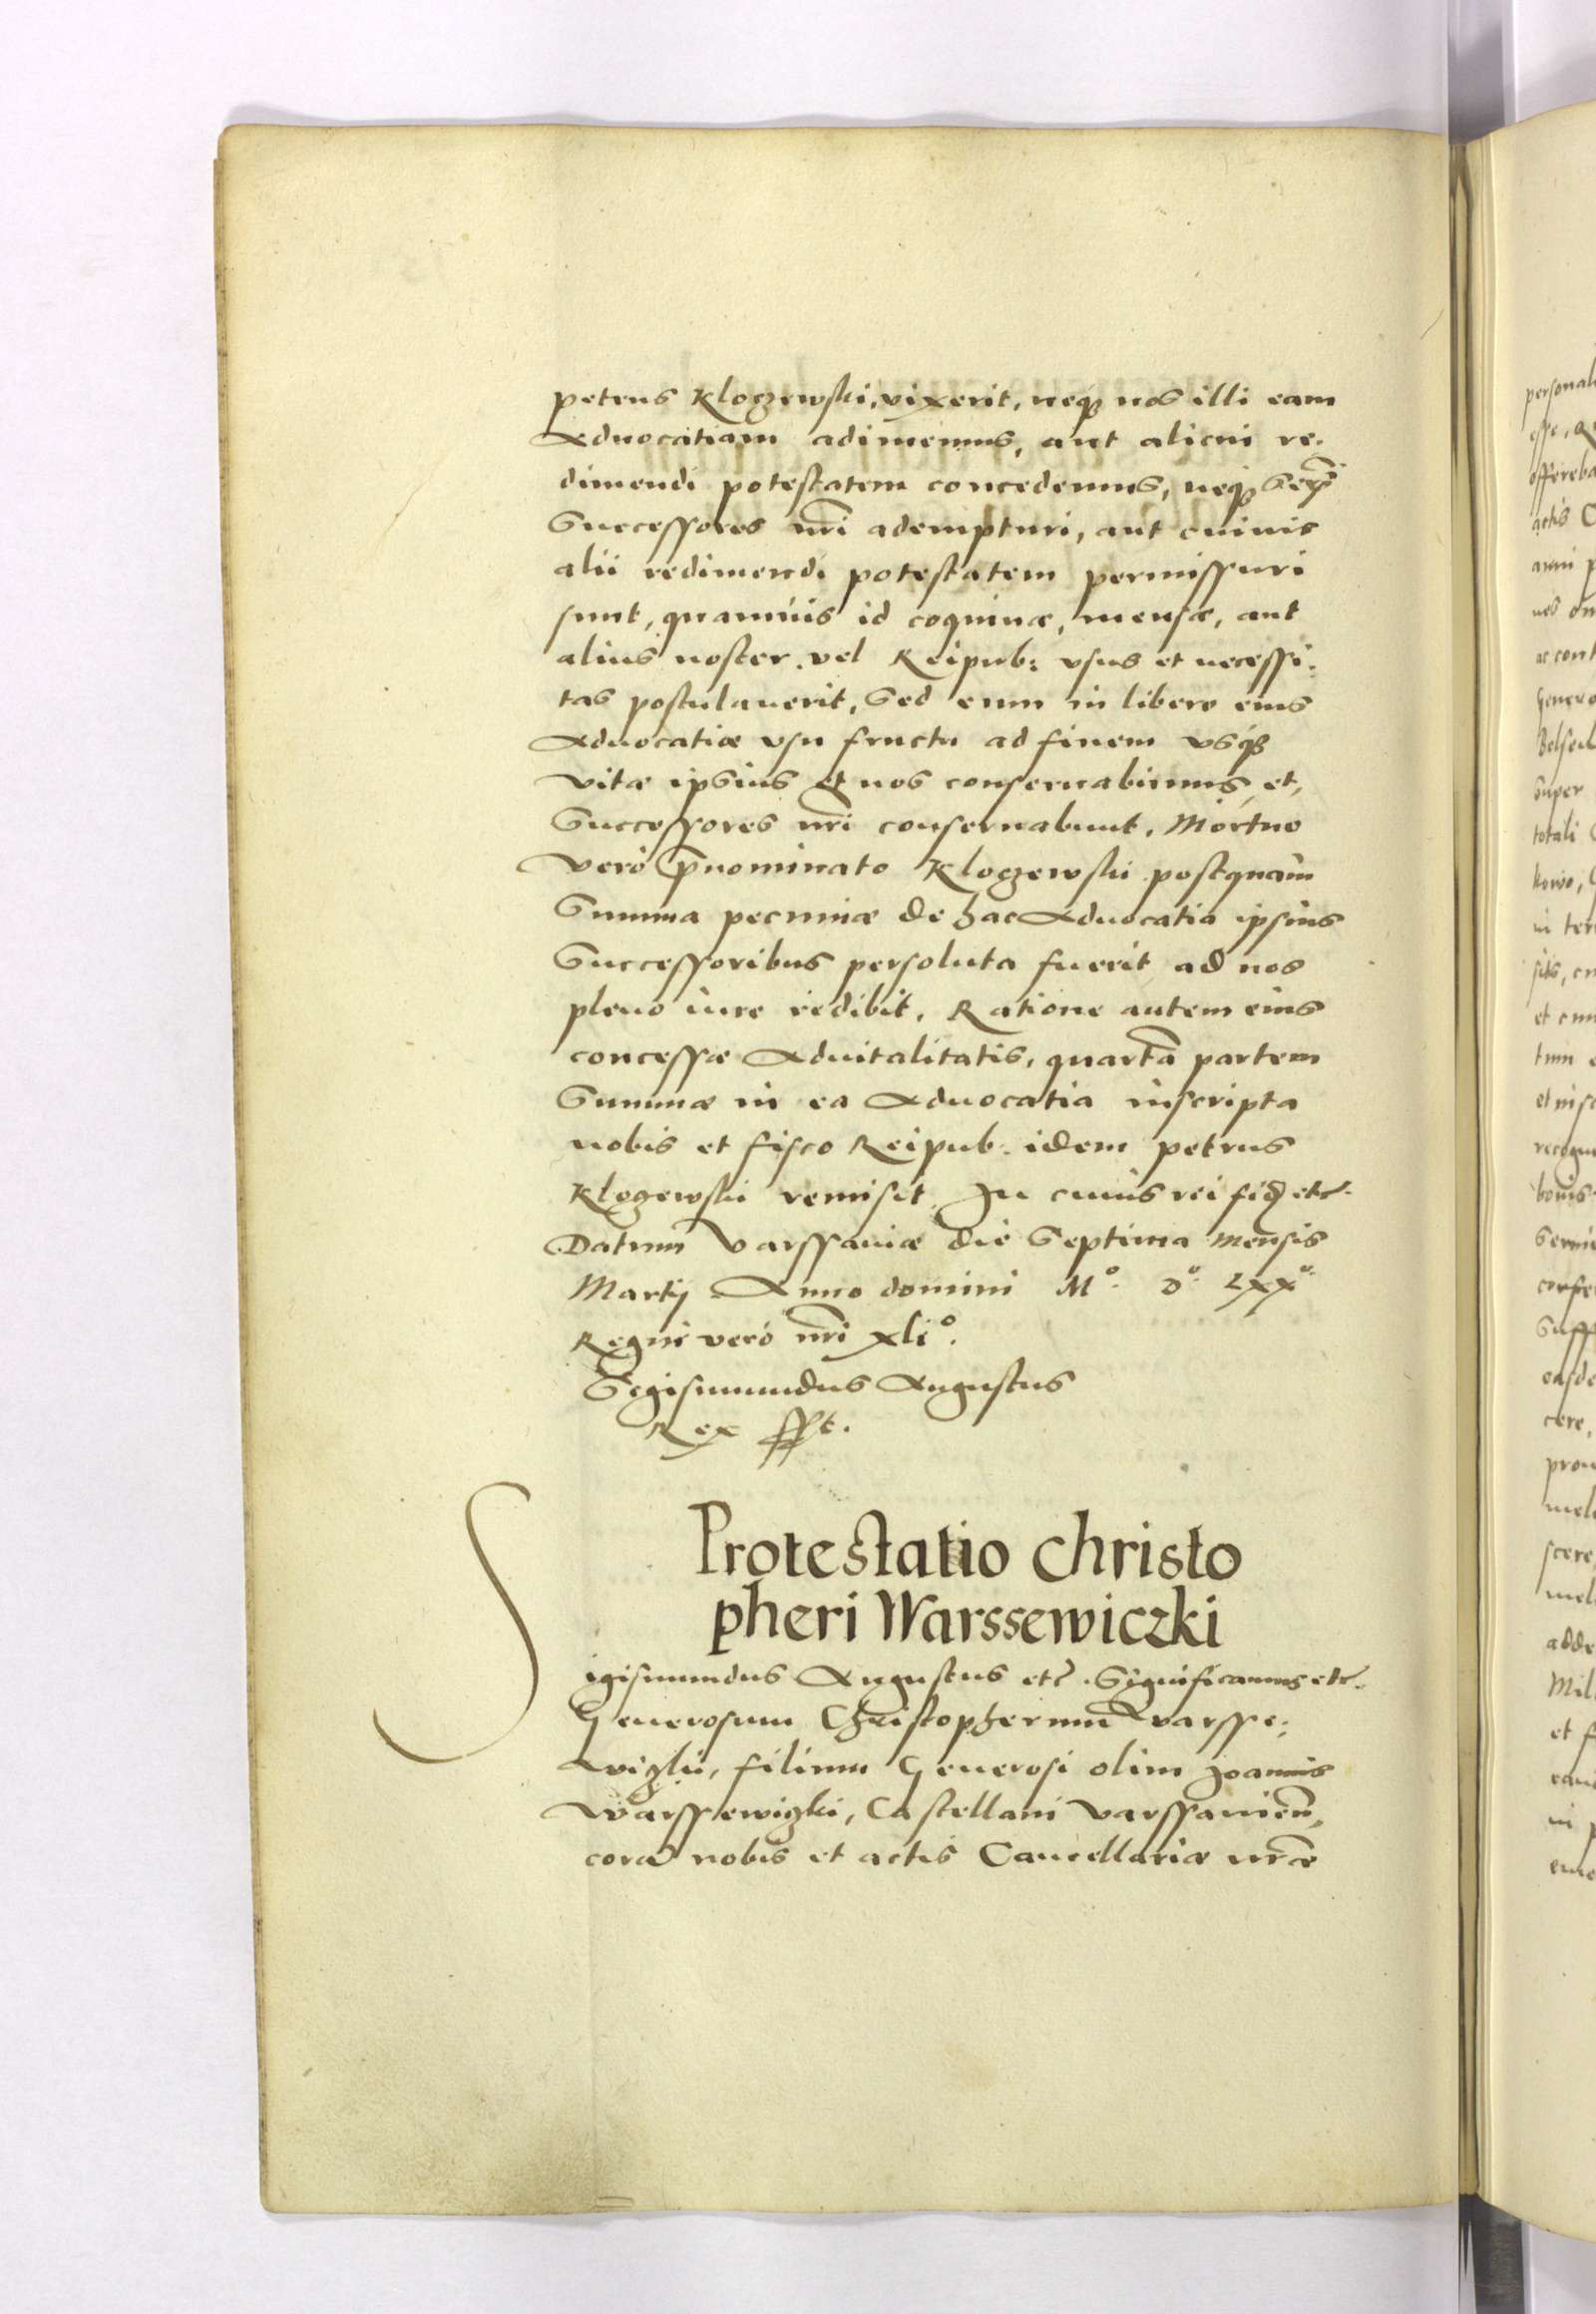 petrus Klogzewski, vixerit, neqꝫ nos illi eam
Aduocatiam adimemus, aut alicui re-
dimendi potestatem concedemus, neqꝫ
Successores nr̃i adempturi, aut cuiuis
alii redimendi potestatem permissuri
sunt, quamuis id coquinæ, mensæ, aut
alius noster. vel Reipub: vsus et necessi:
tas postulauerit, Sed eum in libero eius
Aduocatiæ vsu fructu ad finem vsqꝫ
vitæ ipsius et nos conseruabimus, et,
Successores nr̃i conseruabunt. Mortuo
verò p̃nominato Klogzewski postquàm
Summa pecuniæ de hac Aduocatia ipsius
Successoribus persoluta fuerit ad nos
pleno iure redibit. Ratione autem eius
concessæ Aduitalitatis, quartã partem
Summæ in ea Aduocatia inscripta
nobis et fisco Reipub. idem petrus
Klogzewski remisit. In cuius rei fid etc.
Datum Varssauiæ die Septima mensis
Martij Anno domini Mº. Dº. Lxxº.
Regni verò nr̃i xliº.
Sigismundus Augustus
Rex sspt.
Protestatio Christo
pheri Warssewiczki
Sigismundus Augustus etc. Significamus etc.
Generosum Christopherum Warsse:
wizki, filium Generosi olim Joannis
Warssewizki, Castellani Varssauieñ,
corã nobis et actis Cancellariæ nr̃æ
personali
offereba
actis C
ac cont
super
totali
in ter
sits, cu
et cum
cere,
scere
adde
Mil
et f